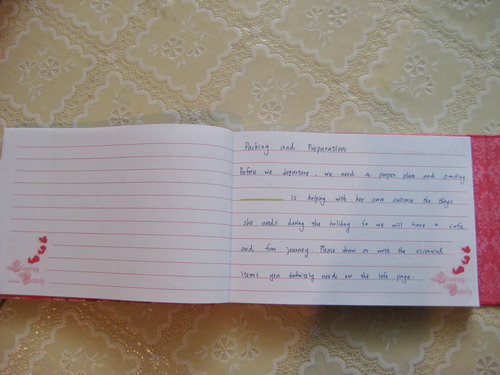 Packing and Preparation
Before we departure, we need a proper plan and packing.
is helping with her own suitcase the things
she needs during the holiday so we will have a safe
and fun journey. Please draw or write the essential
items you definitely needs on the left page.